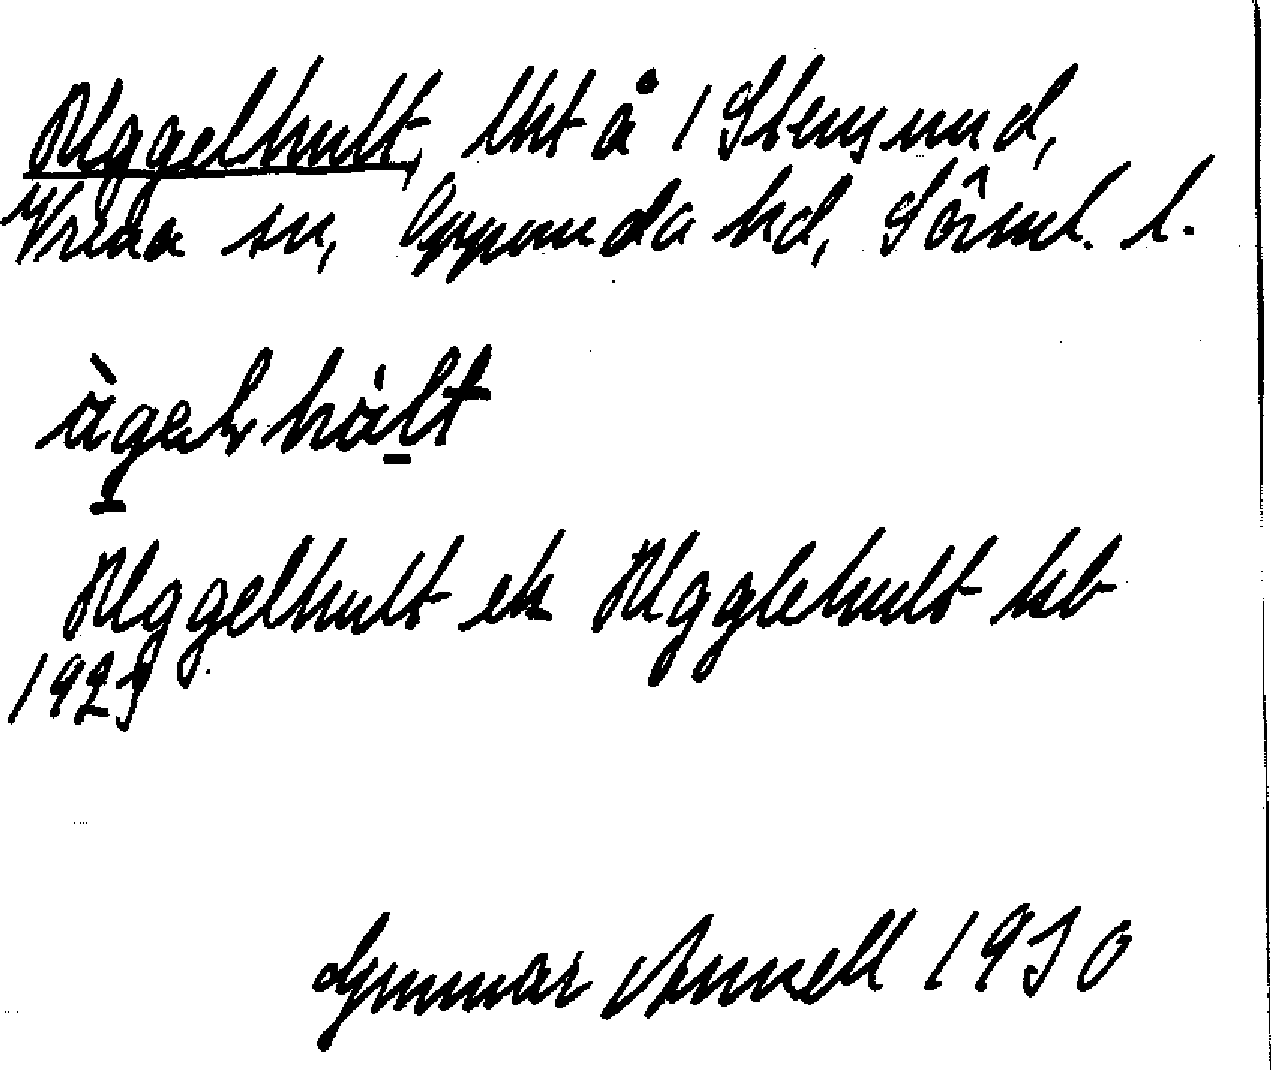 Äggelhult, lht å 1 Stensund,
Vrena sn, Oppunda hd, Sörml. l.
ägelhult
Äggelhult ek Ägglehult kb
1929
Gunnar Annell 1930